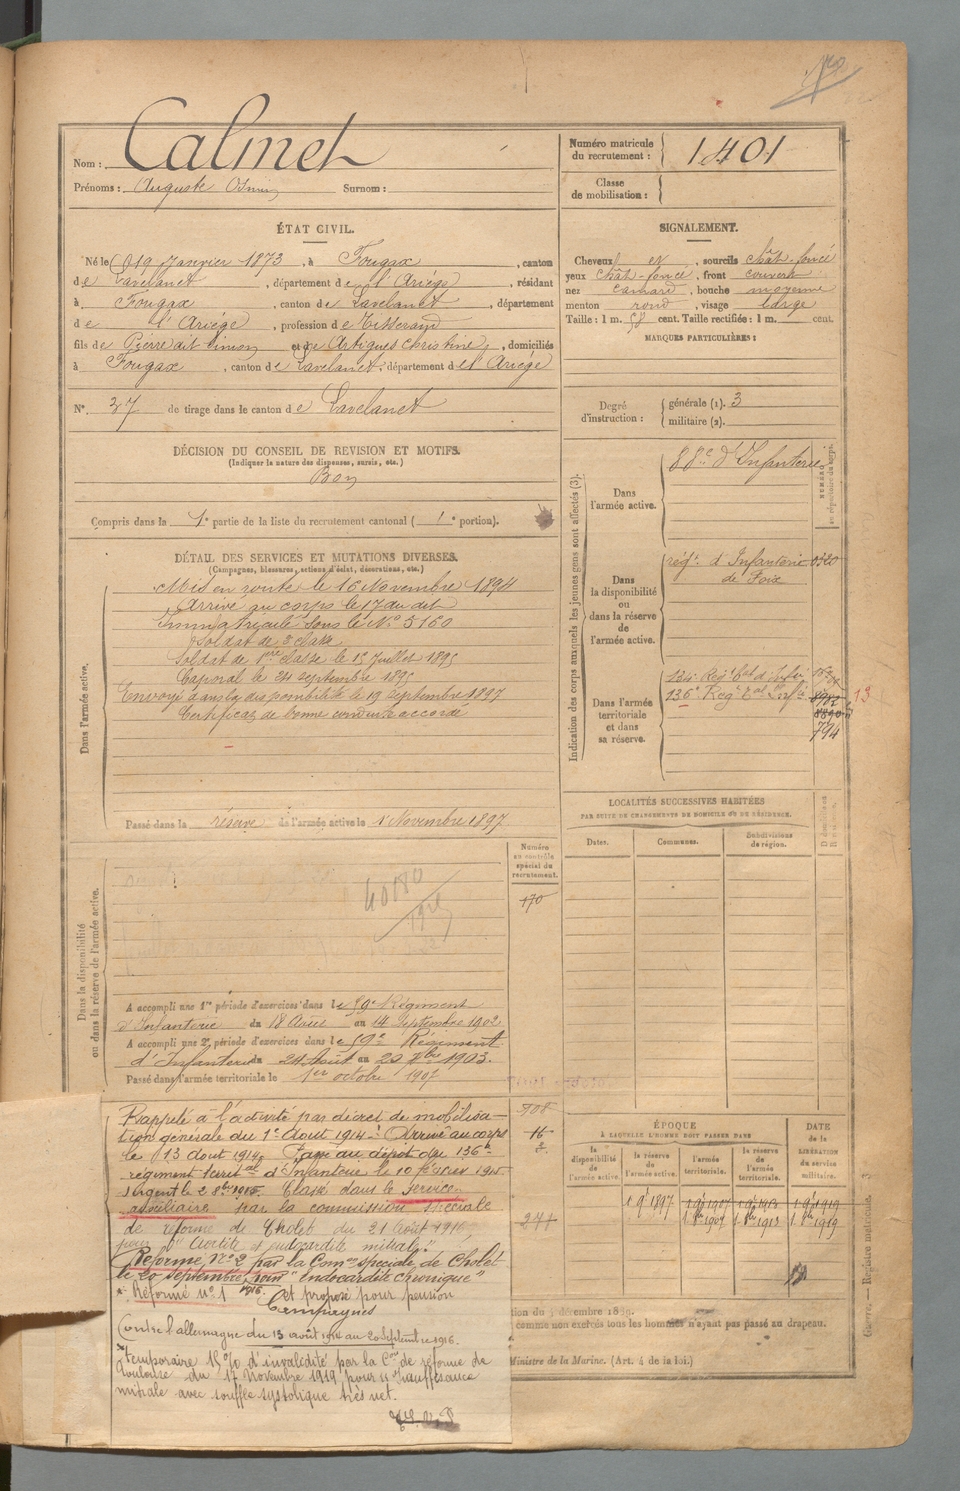 Nom : Calmet
Prénoms : Auguste Surnom :
Numéro matricule du recrutement : 1401
Classe de mobilisation :
ÉTAT CIVIL.
Né le 19 Janvier 1873, à Fougax, canton
de Lavelanet, département de l'Ariège, résidant
à Fougax, canton de Lavelanet, département
de l'Ariège, profession de Tisserand
fils de Pierre dit Simon et de Artigues Christine, domiciliés
à Fougax, canton de Lavelanet, département de l'Ariège
N° 37 de tirage dans le canton de Lavelanet
SIGNALEMENT.
Cheveux et, sourcils chât-foncé
yeux chât-foncé, front couvert
nez camard, bouche moyenne
menton rond, visage large
Taille : 1 m. 58 cent. Taille rectifiée : 1 m. cent.
MARQUES PARTICULIÈRES :
Degré d'instruction : générale (1). 3
militaire (2).
DÉCISION DU CONSEIL DE REVISION ET MOTIFS.
(Indiquer la nature des dispenses, sursis, etc.)
Bon
Compris dans la 1e partie de la liste du recrutement cantonal (1e portion).
DÉTAIL DES SERVICES ET MUTATIONS DIVERSES.
(Campagnes, blessures, actions d'éclat, décorations, etc.)
Dans l'armée active.
Mis en route le 16 Novembre 1894
Arrivé au corps le 17 du dit
Immatriculé sous le No 5160
Soldat de 2e classe
Soldat de 1ère classe le 15 Juillet 1895
Caporal le 24 septembre 1895
Envoyé dans la disponibilité le 19 septembre 1897
Certificat de bonne conduite accordé
Passé dans la réserve de l'armée active le 1 Novembre 1897
Indication des corps auxquels les jeunes gens sont affectés (3).
Dans l'armée active.
88e d'Infanterie
NUMÉRO au répertoire du corps.
Dans la disponibilité ou dans la réserve de l'armée active.
régt. d'Infanterie 0320
de Foix
Dans l'armée territoriale et dans sa réserve.
134 Régt tal d'Infie
136e Régt tal d'Infie
13
794
LOCALITÉS SUCCESSIVES HABITÉES
PAR SUITE DE CHANGEMENTS DE DOMICILE OU DE RÉSIDENCE.
Dates.
Communes.
Subdivisions de région.
Dans la disponibilité ou dans la réserve de l'armée active.
Numéro au contrôle spécial du recrutement.
170
40180
A accompli une 1re période d'exercices dans le 59e Régiment
d'Infanterie du 18 Août au 14 Septembre 1902
A accompli une 2e période d'exercices dans le 59e Régiment
d'Infanterie du 24 Août au 20 7bre 1903.
Passé dans l'armée territoriale le 1er octobre 1907
908
16
271
Rappelé à l'activité par décret de mobilisa-
tion générale du 1er Août 1914. Arrivé au corps
le 13 août 1914. Passé au dépôt du 136e
régiment territal d'Infanterie le 10 février 1915
Sergent le 2 8bre 1915. Classé dans le service
auxiliaire par la commission spéciale
de réforme de Cholet du 21 Août 1916
pour "Aortite et endocardite mitrale".
Réformé No 2 par la Comon spéciale de Cholet
le 20 septembre 1916 pour "endocardite chronique"
* Réformé no 1 et proposé pour pension
Campagnes
Contre l'allemagne du 13 août 1914 au 20 Septembre 1916.
* temporaire 15 % d'invalidité par la Con de réforme de
Toulouse du 17 Novembre 1919 pour insuffisance
mitrale avec souffle systolique très net.
ÉPOQUE
À LAQUELLE L'HOMME DOIT PASSER DANS
DATE de la LIBÉRATION du service militaire.
la disponibilité de l'armée active.
la réserve de l'armée active.
l'armée territoriale.
la réserve de l'armée territoriale.
1 9e 1897 1 9e 1907 1 9e 1913 1 9e 1919
1. 8bre 1907 1. 8bre 1913 1. 8bre 1919
comme non exercés tous les hommes n'ayant pas passé au drapeau.
Ministre de la Marine. (Art. 4 de la loi.)
Guerre. — Registre matricule. 3